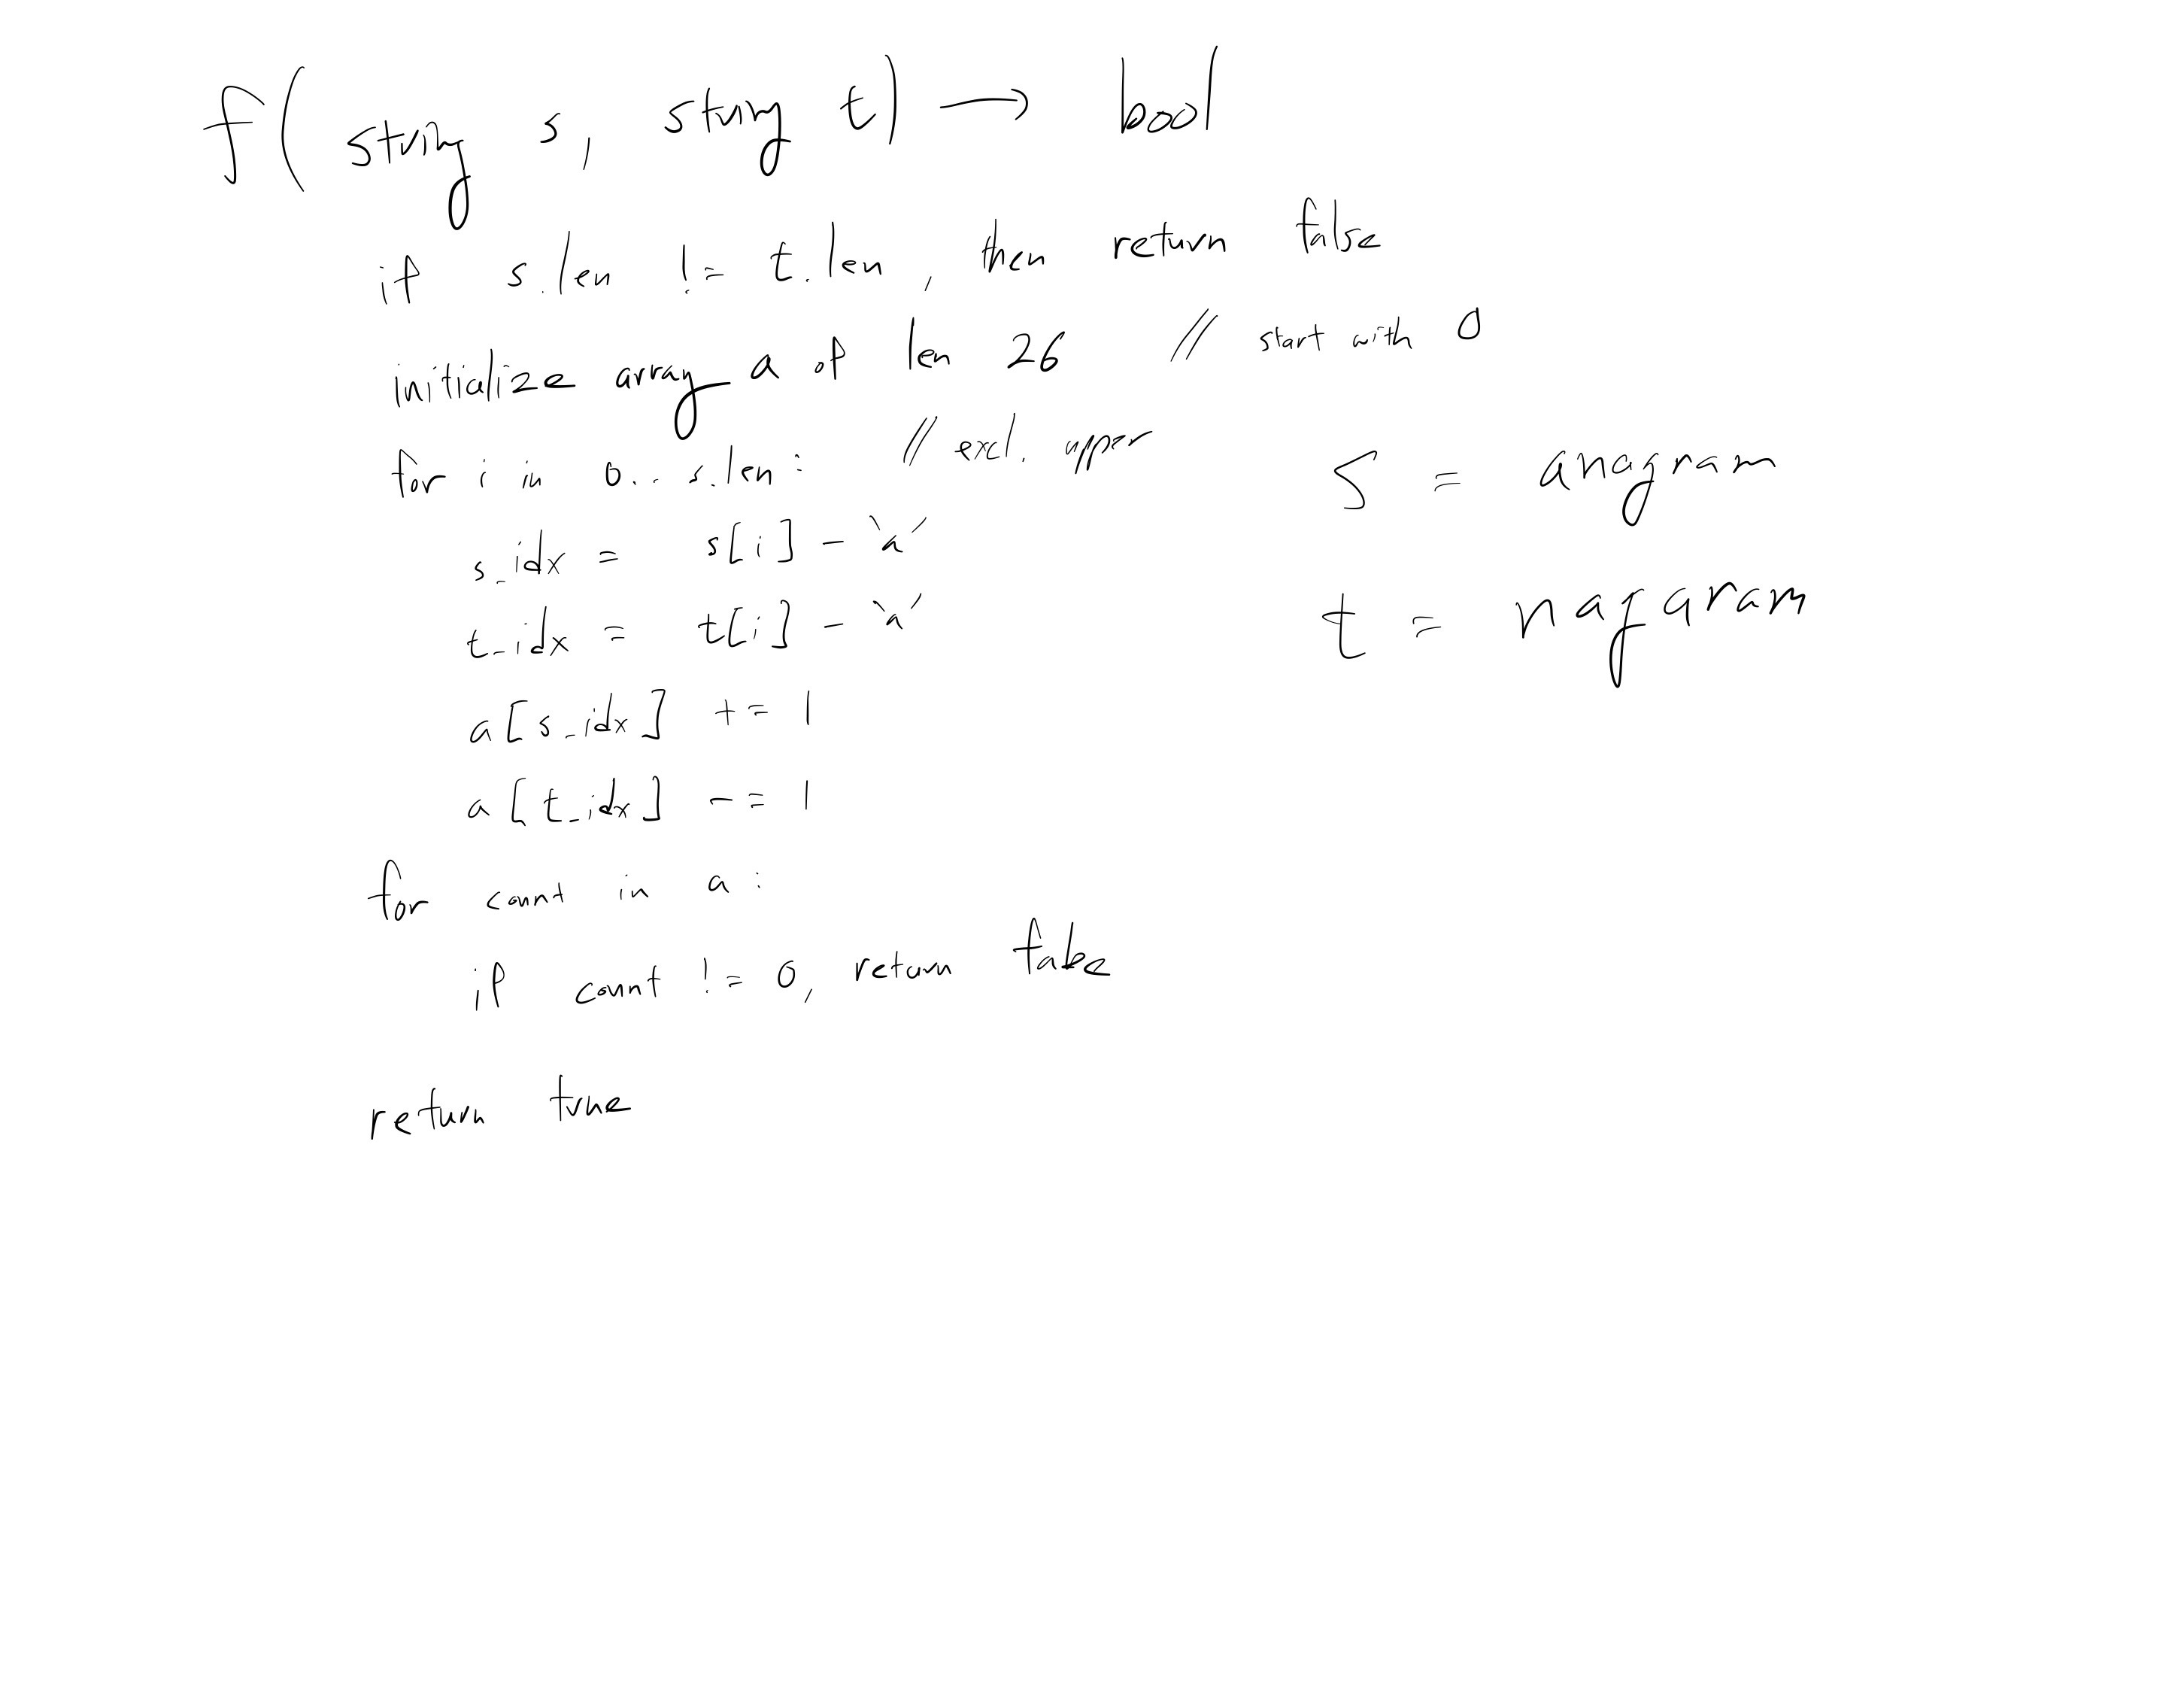 f(string s, string t) → bool
if s.len != t.len, then return false
initialize array a of len 26 // start with 0
for i in 0..s.len: // excl. upper
s_idx = s[i] - 'a'
t_idx = t[i] - 'a'
a[s_idx] += 1
a[t_idx] -= 1
for count in a:
if count != 0, return false
return true
s = anagram
t = nagaram